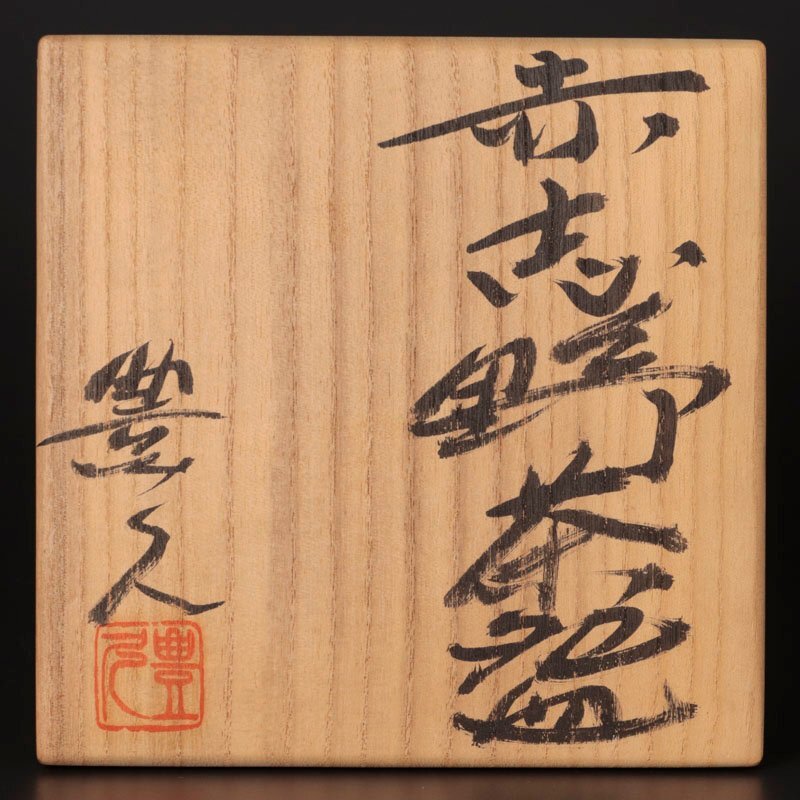 赤志野茶盌
豊久
豊久